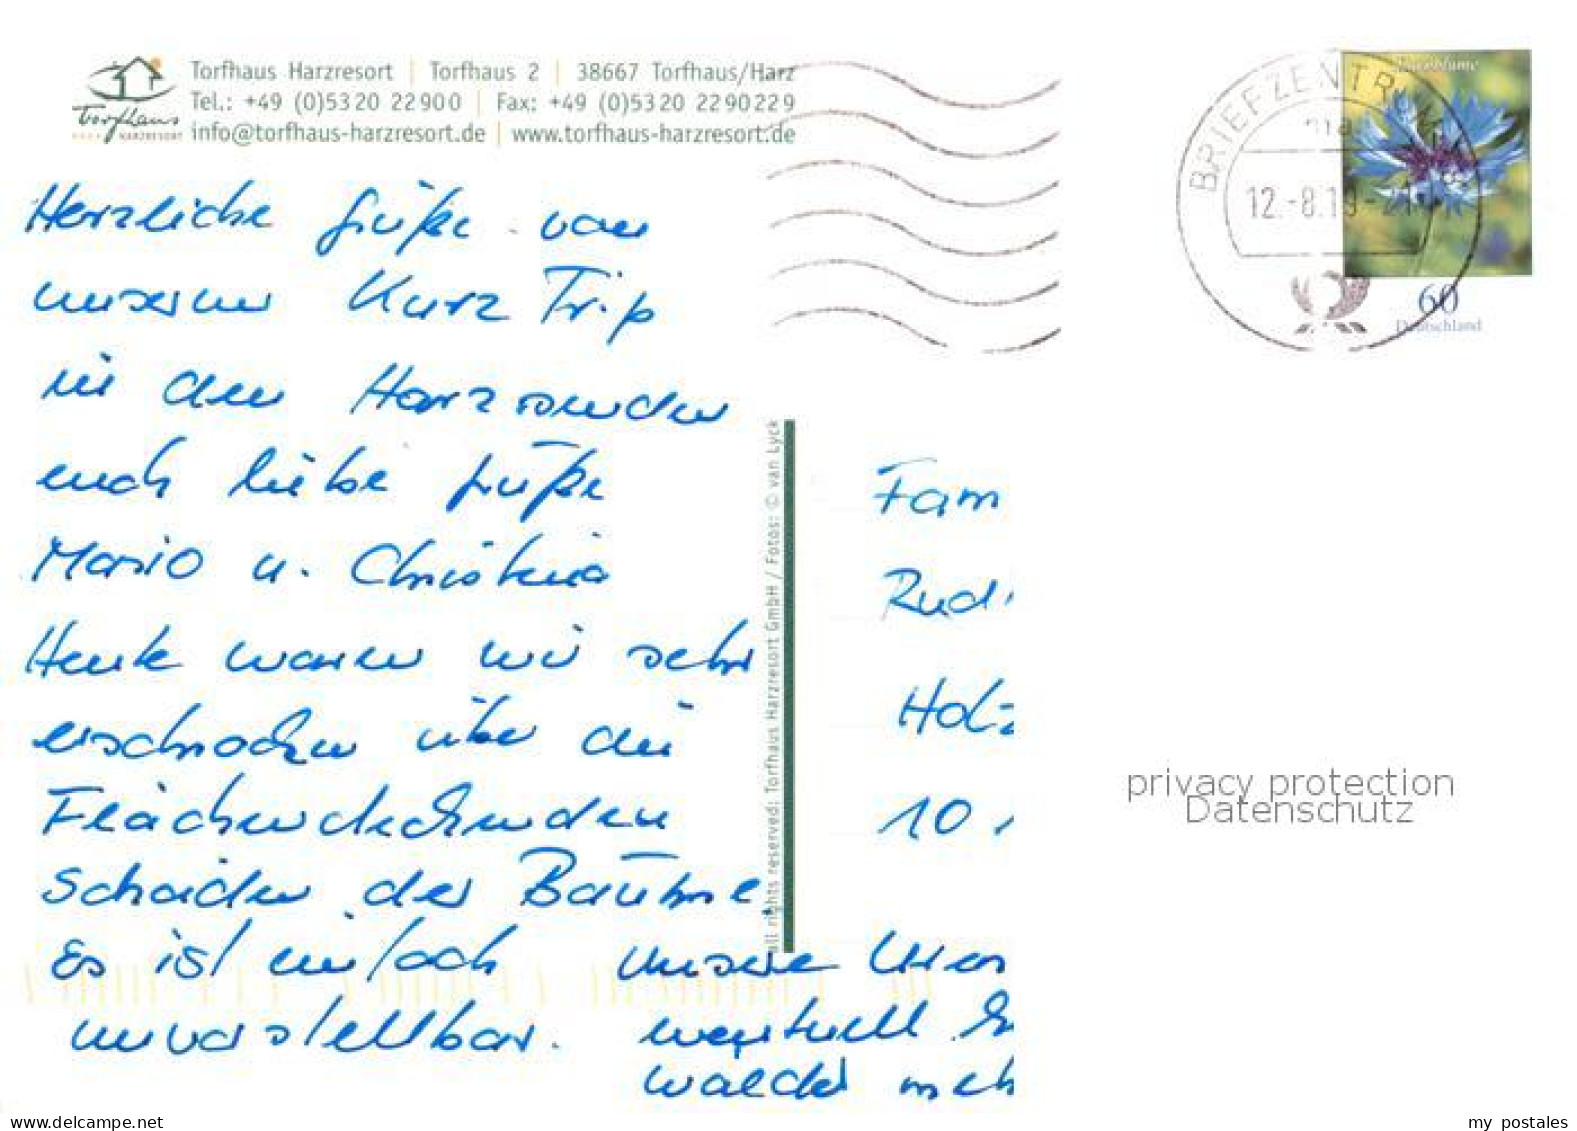 Torfhaus Harzresort | Torfhaus 2 | 38667 Torfhaus/Harz
Torfhaus Tel.: +49 (0)5320 22900 | Fax: +49 (0)5320 2290229
HARZRESORT info@torfhaus-harzresort.de | www.torfhaus-harzresort.de
BRIEFZENTRUM
12.-8.19-21
Kornblume
60
Deutschland
Herzliche Grüße von
unserem Kurz Trip
in den Harz senden
euch liebe Grüße
Mario u. Christina
Heute waren wir sehr
erschrocken über die
Flächendeckenden
Schäden der Bäume
Es ist einfach
unvorstellbar.
unsere
eventuell
Wälder meh
all rights reserved: Torfhaus Harzresort GmbH / Fotos: © van Lyck
Fam
Rudi
Holz
10
privacy protection
Datenschutz
my postales.com
my postales